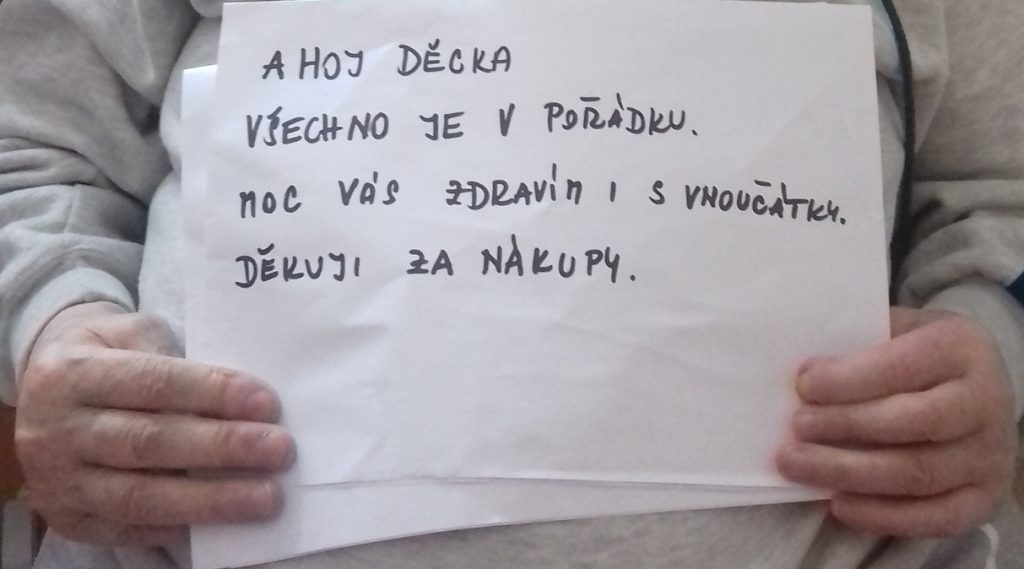 AHOJ DĚCKA
VŠECHNO JE V POŘÁDKU.
MOC VÁS ZDRAVÍM I S VNOUČÁTKY.
DĚKUJI ZA NÁKUPY.